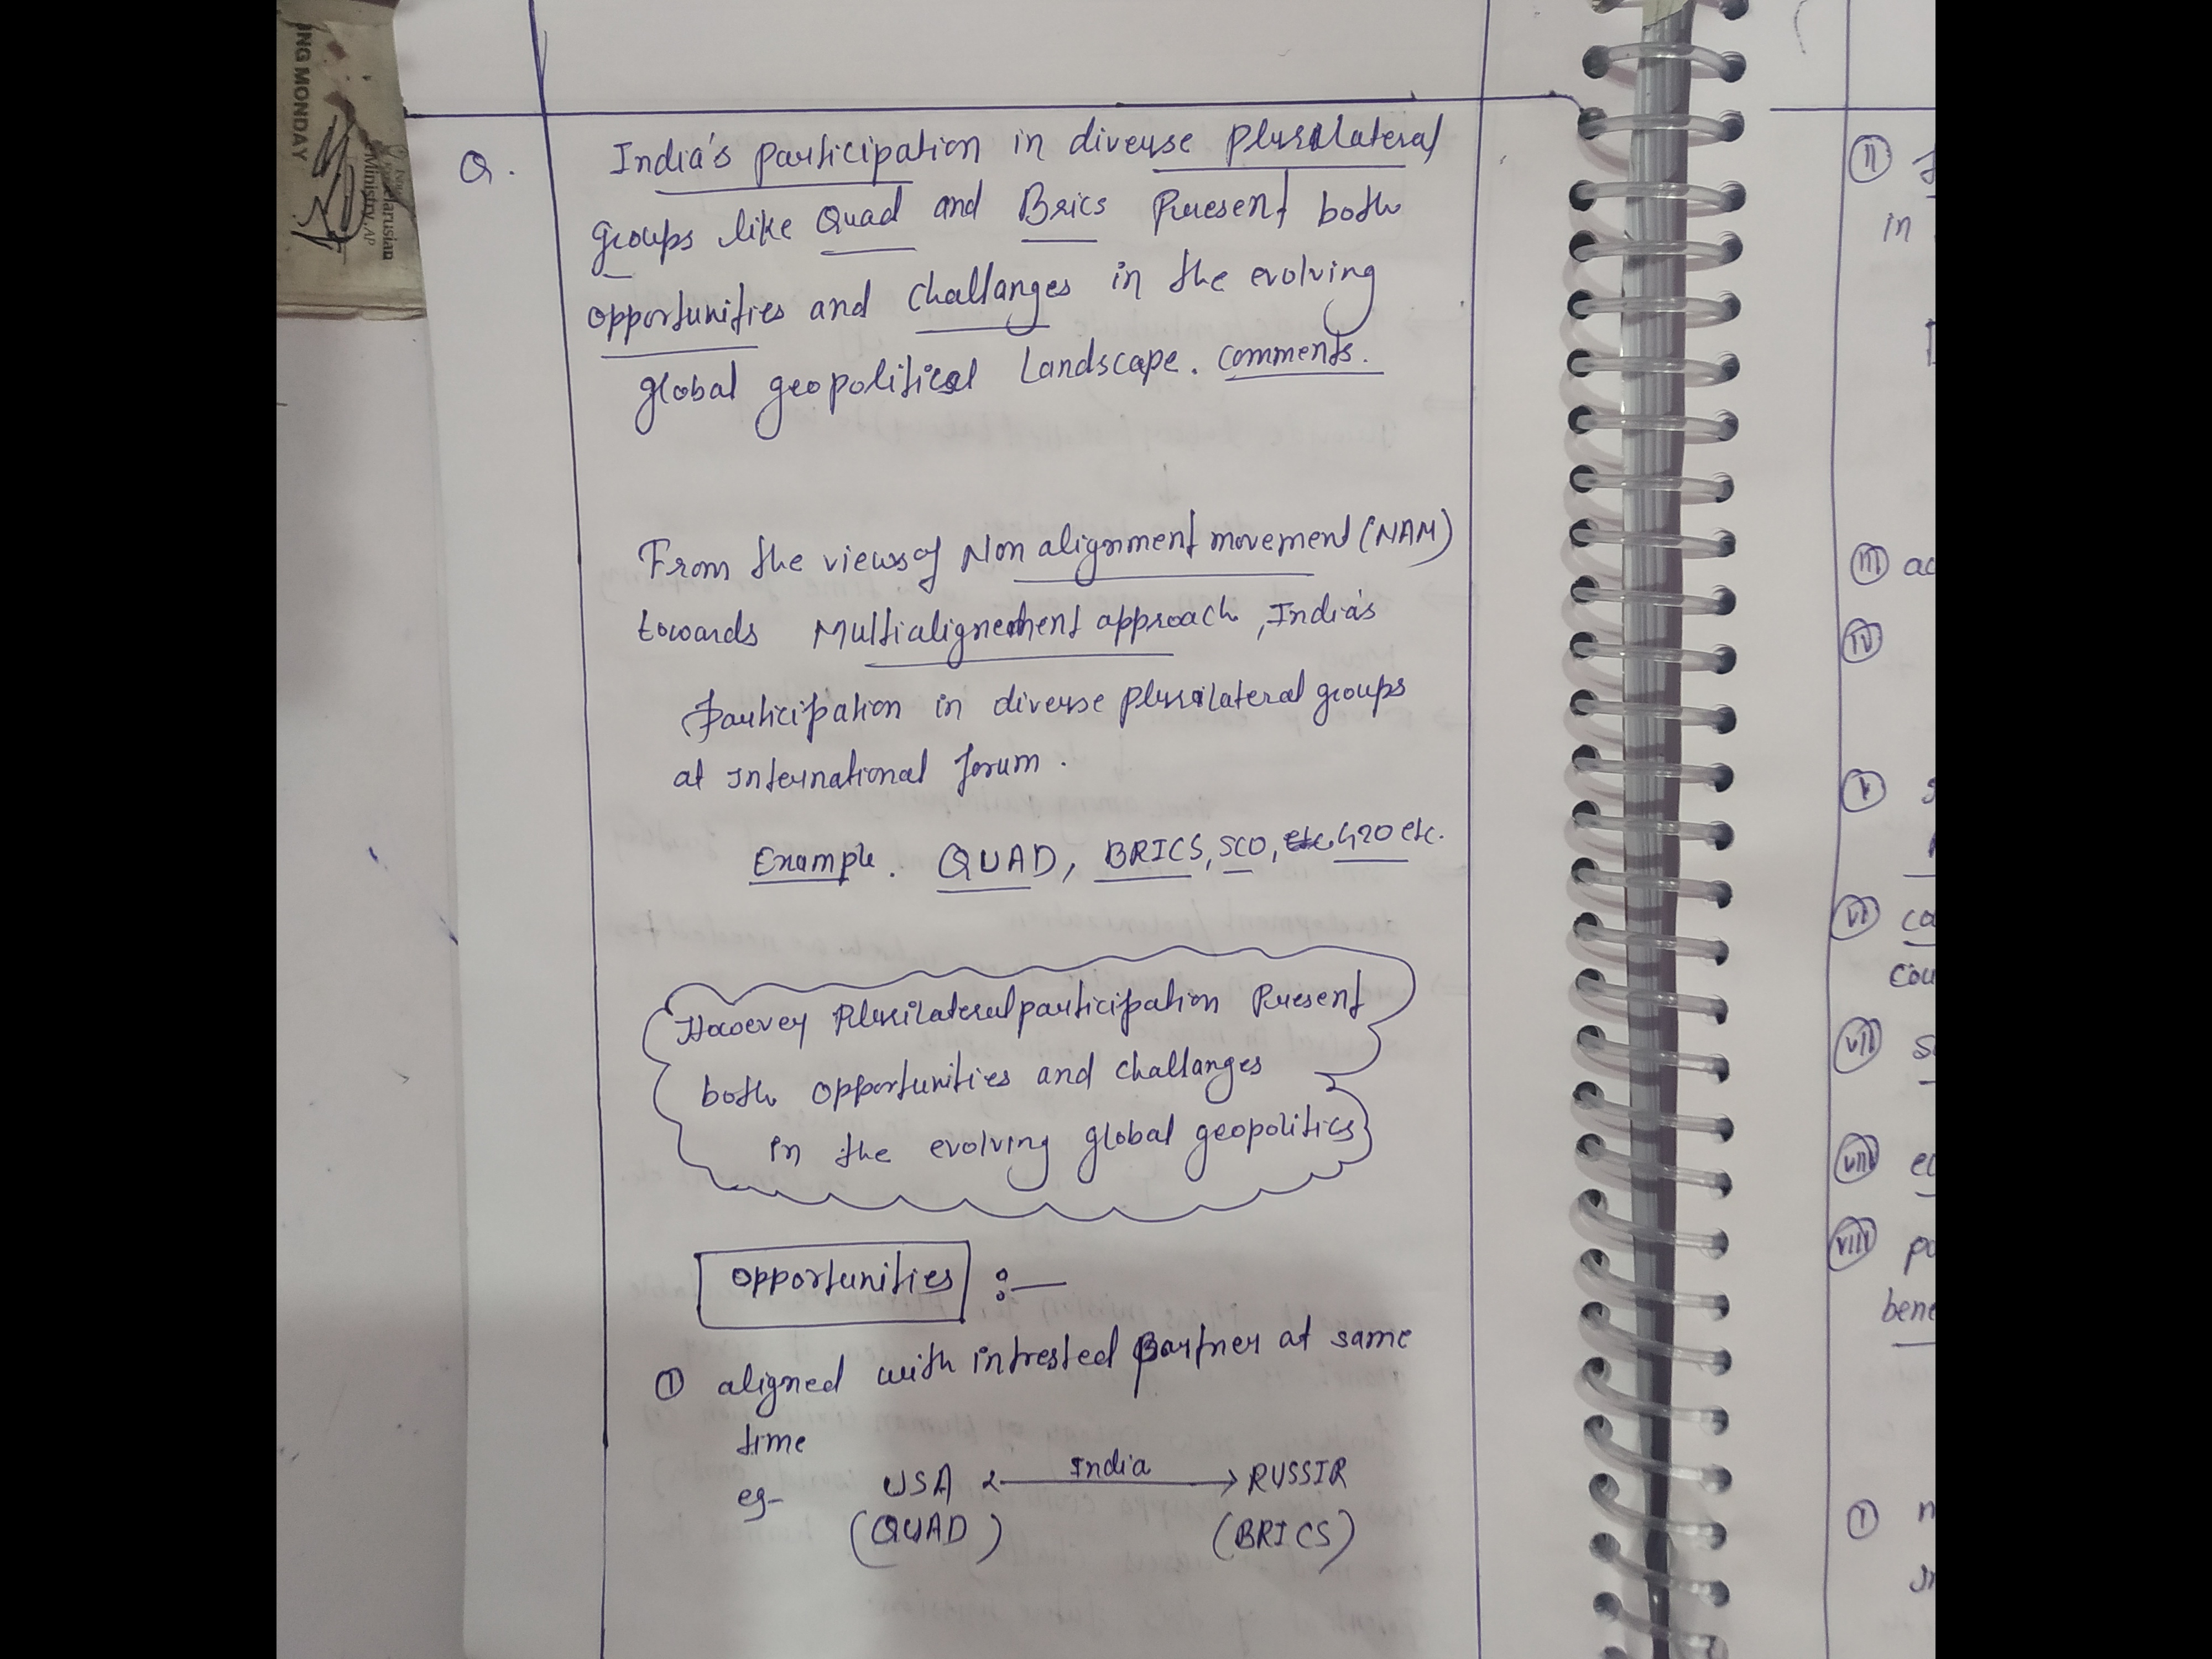 ING MONDAY
Ministry, AP
Q. India's participation in diverse plurilateral
groups like Quad and Brics Present both
opportunities and challanges in the evolving
global geopolitical Landscape. comments.
From the views of Non alignment movement (NAM)
towards Multialignement approach, India's
Participation in diverse plurilateral groups
at International forum.
Example. QUAD, BRICS, SCO, etc G20 etc.
However Plurilateral participation Present
both opportunities and challanges
in the evolving global geopolitics
opportunities :—
① aligned with intrested Partner at same
time
eg- USA <— India —> RUSSIA
(QUAD) (BRICS)
ii
in
iii
iv
v
vi
cou
vii
viii
viii
bene
①